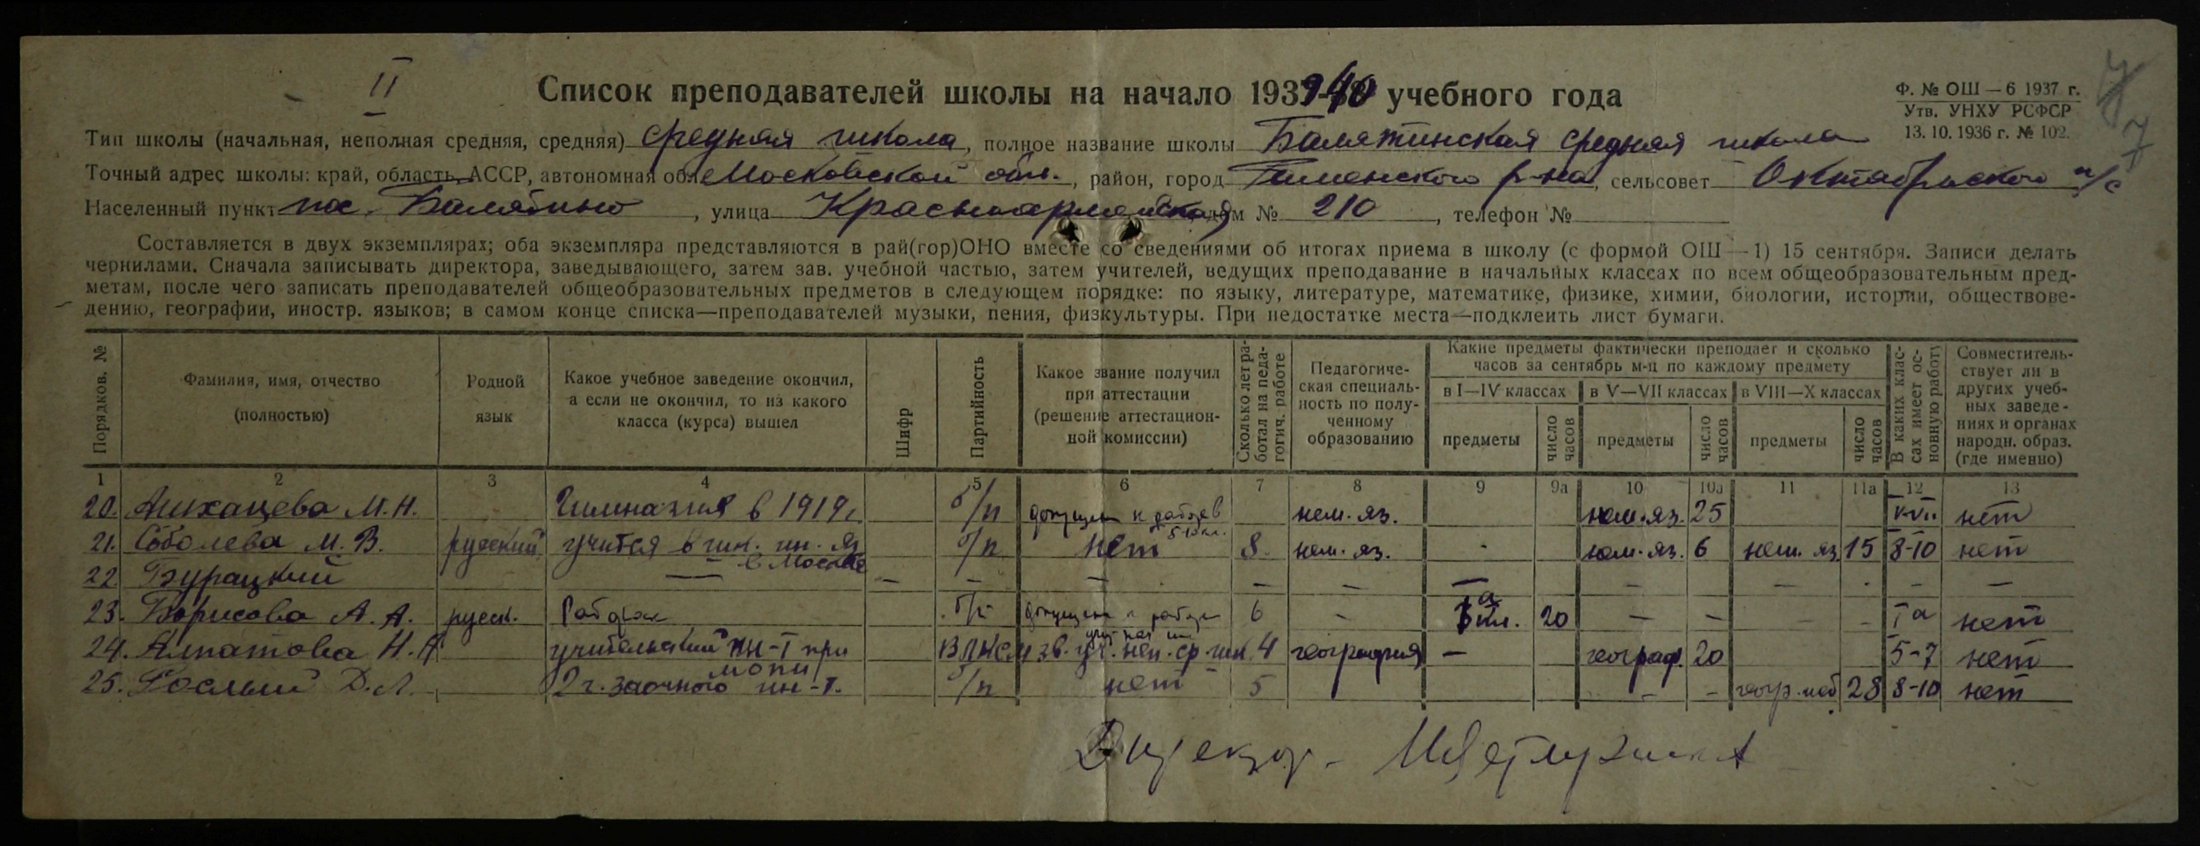 II
Список преподавателей школы на начало 1939/40 учебного года
Ф. № ОШ — 6 1937 г.
Утв. УНХУ РСФСР
13. 10. 1936 г. № 102.
7
7
Тип школы (начальная, неполная средняя, средняя) средняя школа, полное название школы Балятинская средняя школа
Точный адрес школы: край, область, АССР, автономная обл. Московской обл., район, город р-на, сельсовет Октябрьского п/с
Населенный пункт пос. Балятино, улица Красноармейская дом № 210, телефон №
Составляется в двух экземплярах; оба экземпляра представляются в рай(гор)ОНО вместе со сведениями об итогах приема в школу (с формой ОШ—1) 15 сентября. Записи делать
чернилами. Сначала записывать директора, заведывающего, затем зав. учебной частью, затем учителей, ведущих преподавание в начальных классах по всем общеобразовательным пред-
метам, после чего записать преподавателей общеобразовательных предметов в следующем порядке: по языку, литературе, математике, физике, химии, биологии, истории, обществове-
дению, географии, иностр. языков; в самом конце списка—преподавателей музыки, пения, физкультуры. При недостатке места—подклеить лист бумаги.
Порядков. №
Фамилия, имя, отчество
(полностью)
Родной
язык
Какое учебное заведение окончил,
а если не окончил, то из какого
класса (курса) вышел
Шифр
Партийность
Какое звание получил
при аттестации
(решение аттестацион-
ной комиссии)
Сколько лет ра-
ботал на педа-
гогич. работе
Педагогиче-
ская специаль-
ность по полу-
ченному
образованию
Какие предметы фактически преподает и сколько
часов за сентябрь м-ц по каждому предмету
в I—IV классах
в V—VII классах
в VIII—X классах
предметы
число часов
предметы
число часов
предметы
число часов
В каких клас-
сах имеет ос-
новную работу
Совместитель-
ствует ли в
других учеб-
ных заведе-
ниях и органах
народн. образ.
(где именно)
1 2 3 4 5 6 7 8 9 9а 10 10а 11 11а 12 13
20. М. Н. Гимназия в 1919 г. б/п допущен к работе 5-10 кл. нем. яз. нем. яз. 25 V-VII нет
21. Соболева М. В. русский учится в ин. яз. в Москве б/п нет 8 нем. яз. - нем. яз. 6 нем. яз. 15 8-10 нет
22. Бурацкий — — — — — — — — — — —
23. Борисова А. А. русск. Рабфак б/п допущен к работе 6 - Iа кл. 20 — — - - Iа нет
24. Алпатова Н. А. учительский ин-т при МОПИ ВЛКС 4 география — географ. 20 5-7 нет
25. Д. Л. 2 г. заочного ин-т. б/п нет 5 - - 28 8-10 нет
Директор -